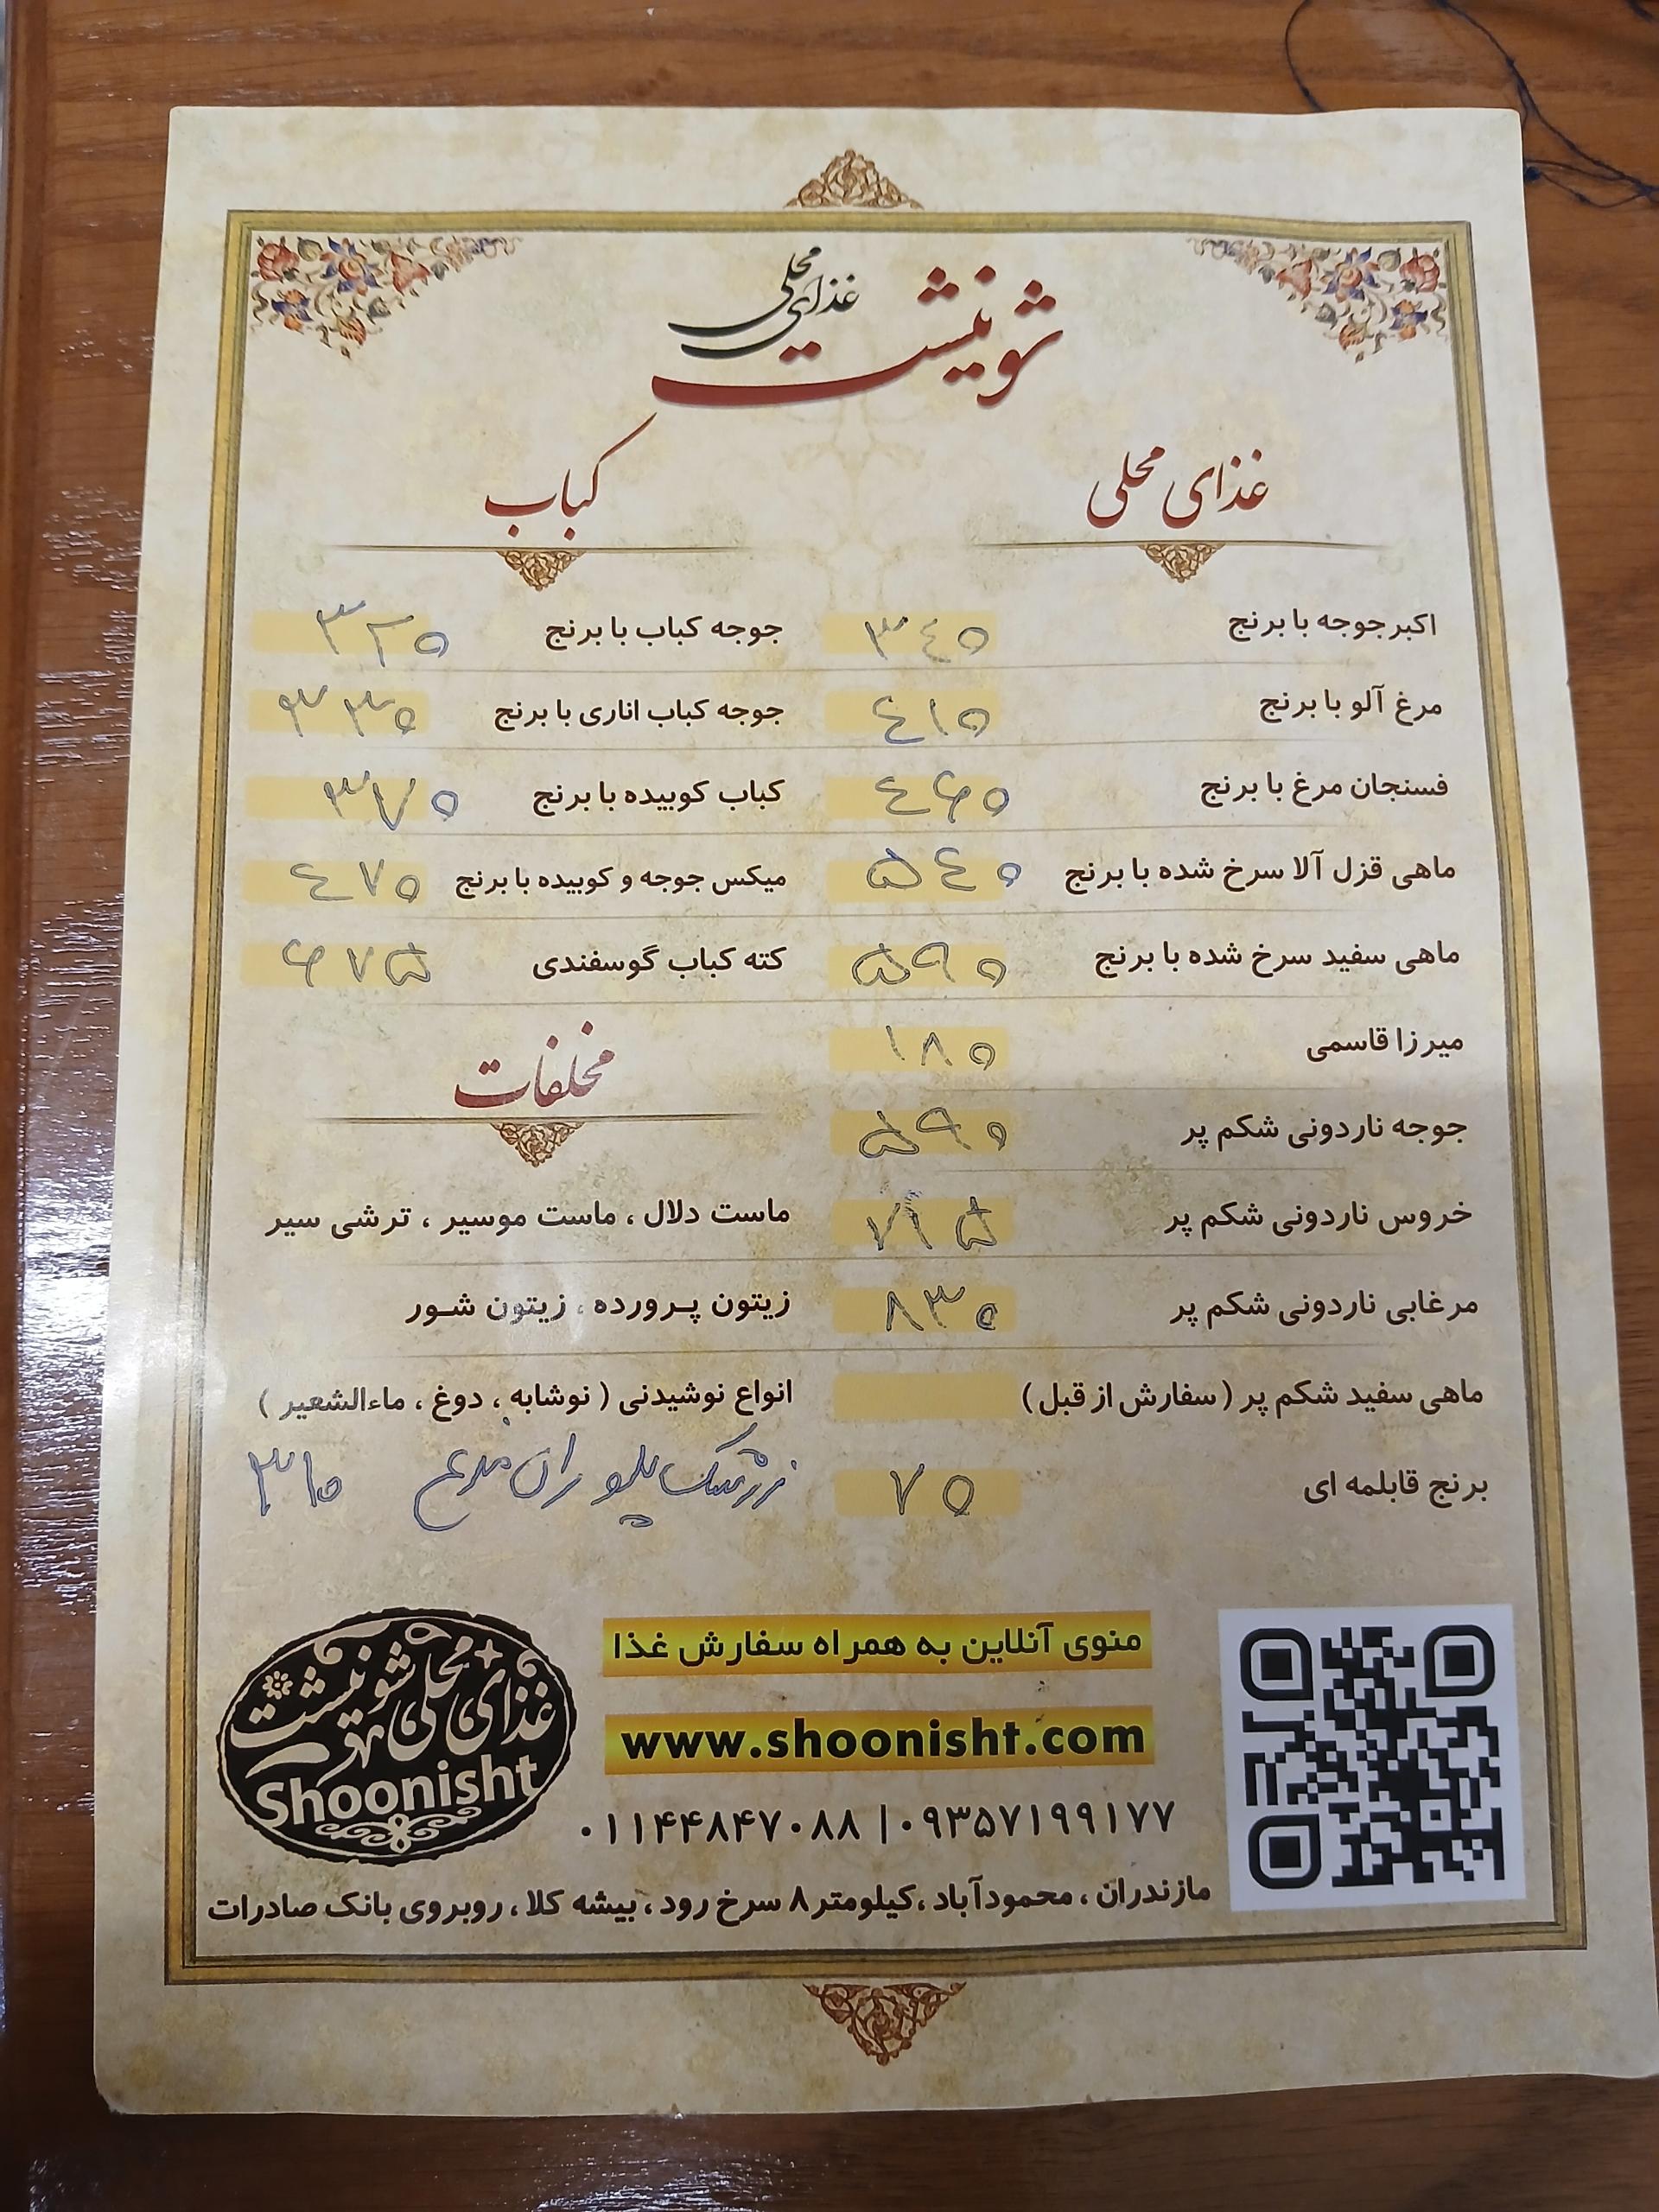 شونیشت
غذای محلی
غذای محلی
اکبر جوجه با برنج ۳۴۵
مرغ آلو با برنج ۴۱۵
فسنجان مرغ با برنج ۴۶۵
ماهی قزل آلا سرخ شده با برنج ۵۴۰
ماهی سفید سرخ شده با برنج ۵۹۰
میرزا قاسمی ۱۸۵
جوجه ناردونی شکم پر ۵۹۰
خروس ناردونی شکم پر ۷۱۵
مرغابی ناردونی شکم پر ۸۳۰
ماهی سفید شکم پر (سفارش از قبل)
برنج قابلمه ای ۷۵
کباب
جوجه کباب با برنج ۳۲۵
جوجه کباب اناری با برنج ۳۳۵
کباب کوبیده با برنج ۳۷۵
میکس جوجه و کوبیده با برنج ۴۷۵
کته کباب گوسفندی ۶۷۵
مخلفات
ماست دلال ، ماست موسیر ، ترشی سیر
زیتون پرورده ، زیتون شور
انواع نوشیدنی ( نوشابه ، دوغ ، ماءالشعیر )
زرشک پلو ران مرغ ۳۱۵
منوی آنلاین به همراه سفارش غذا
www.shoonisht.com
۰۱۱۴۴۸۴۷۰۸۸ | ۰۹۳۵۷۱۹۹۱۷۷
مازندران ، محمودآباد ، کیلومتر ۸ سرخ رود ، بیشه کلا ، روبروی بانک صادرات
غذای محلی شونیشت
Shoonisht